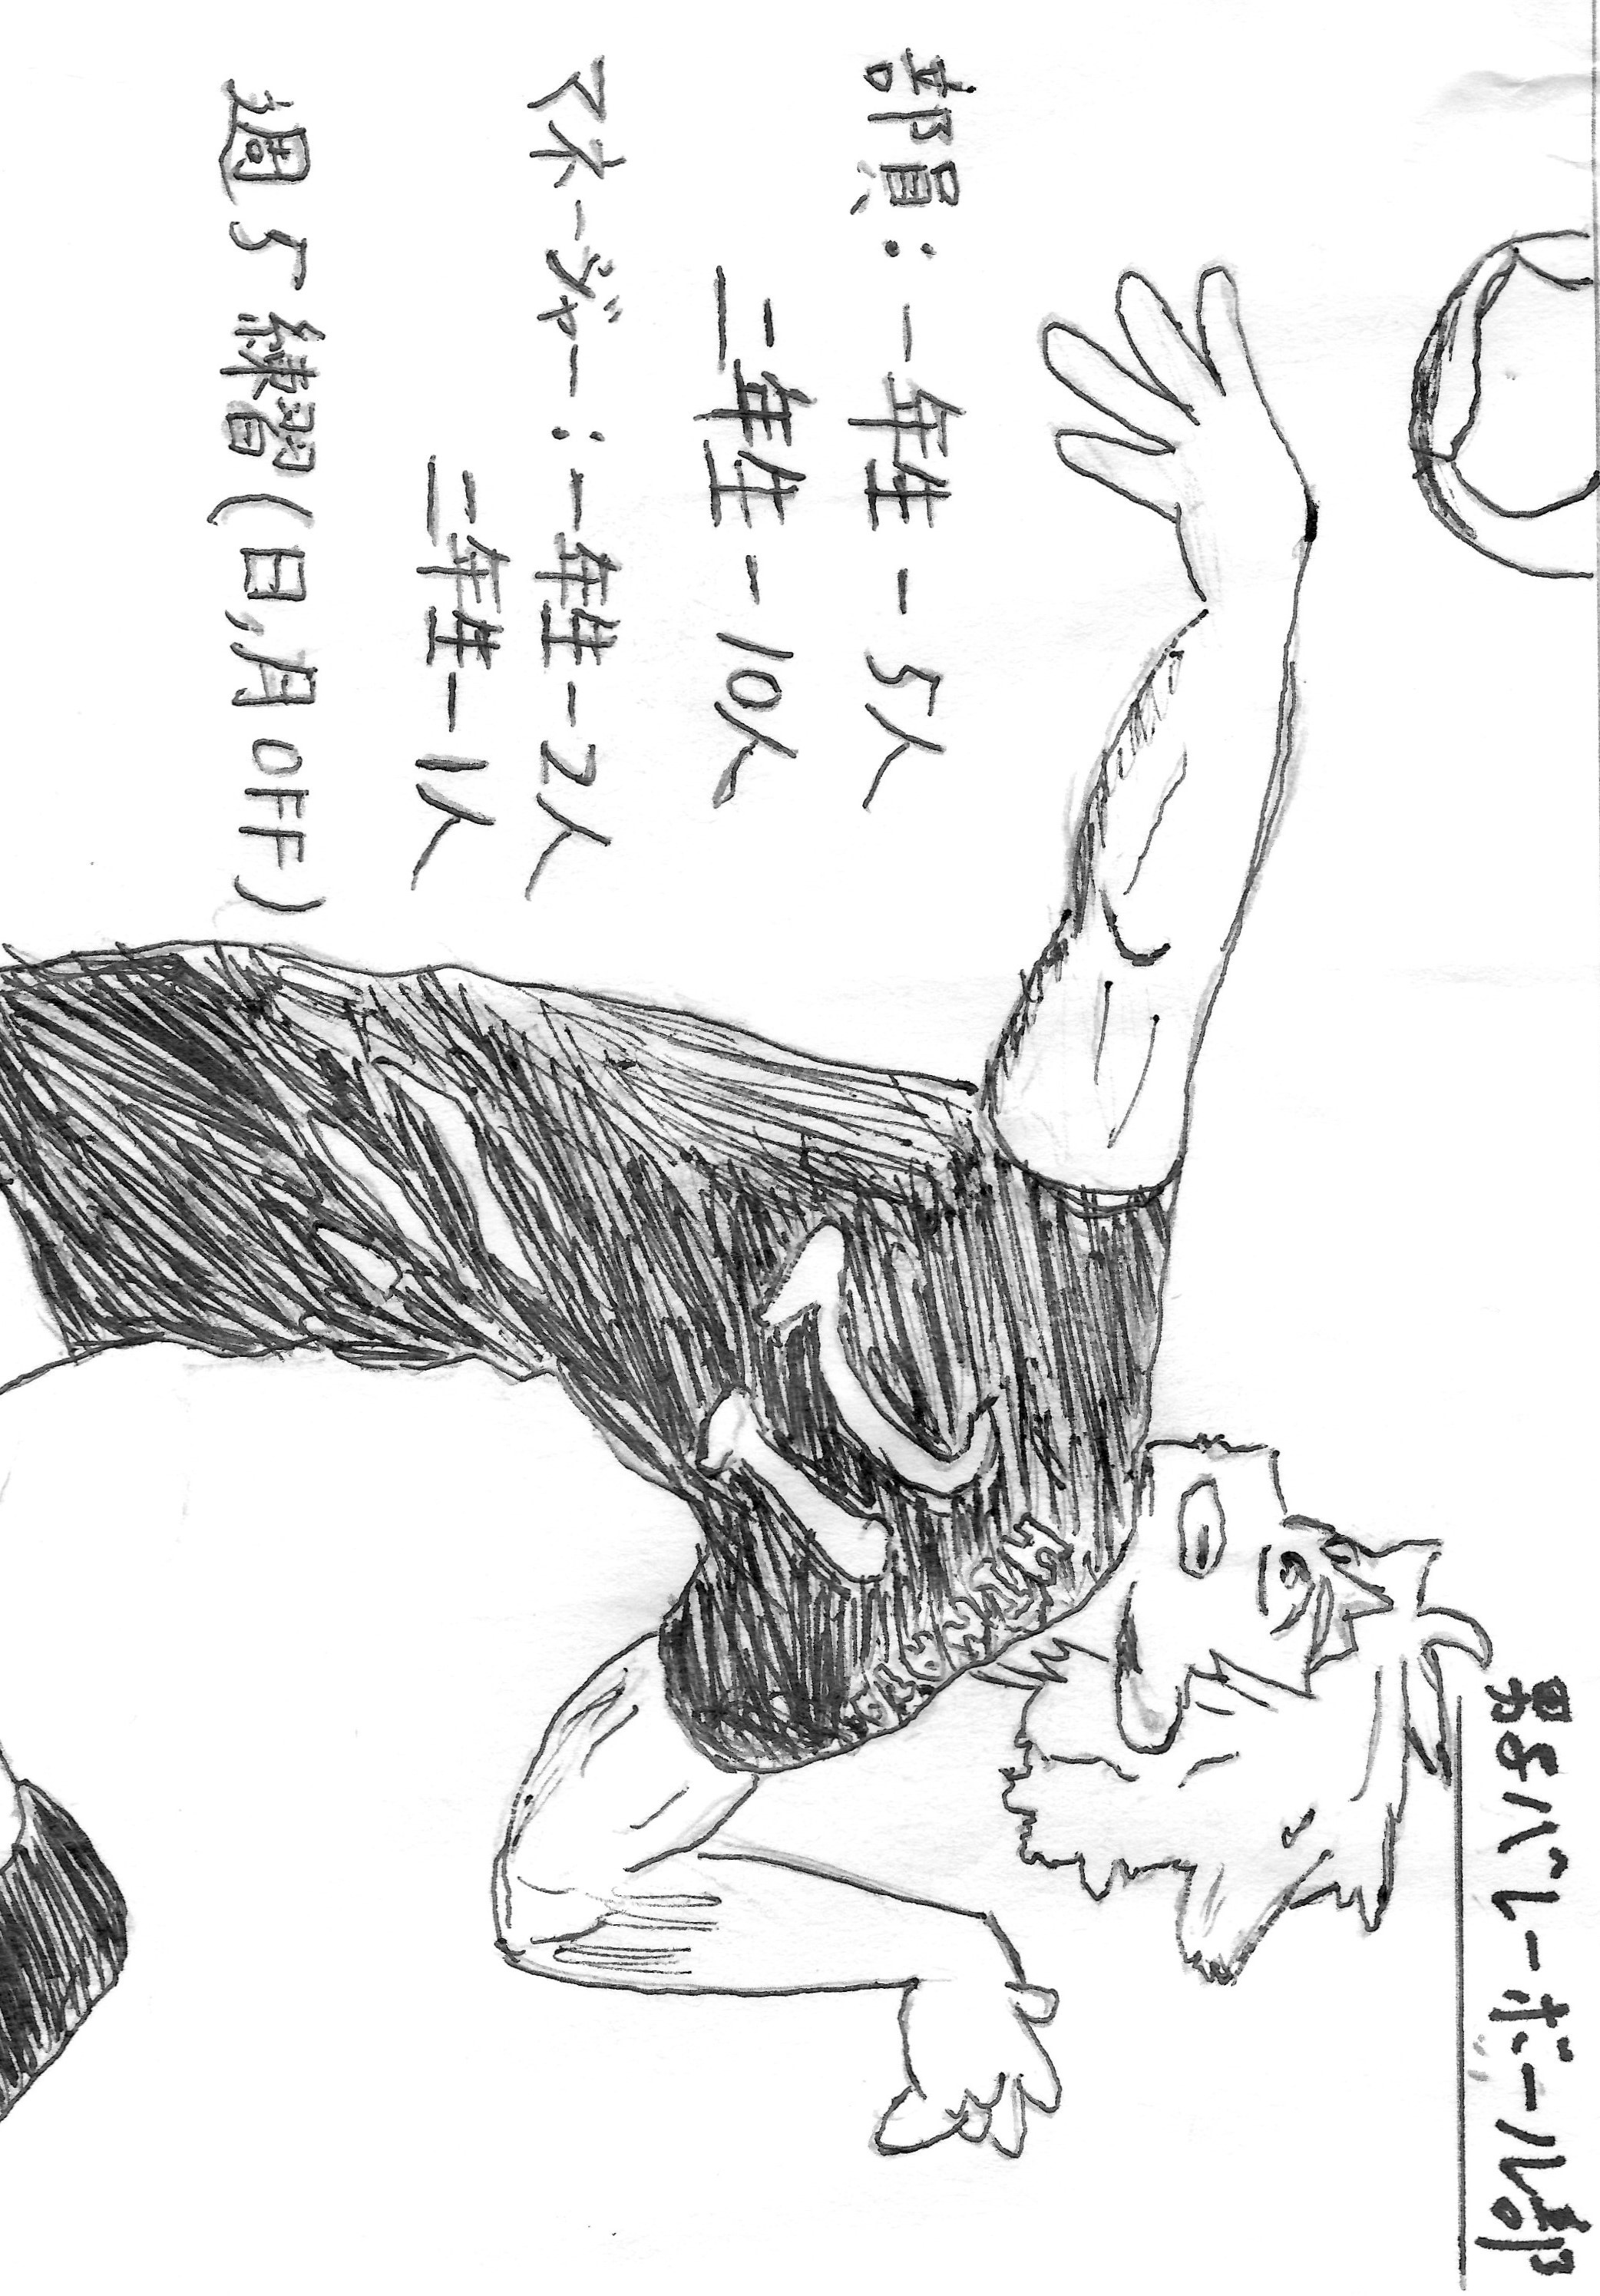 男子バレーボール部
部員:一年生-5人
二年生-10人
マネージャー:一年生-2人
二年生-1人
週5練習(日,月OFF)